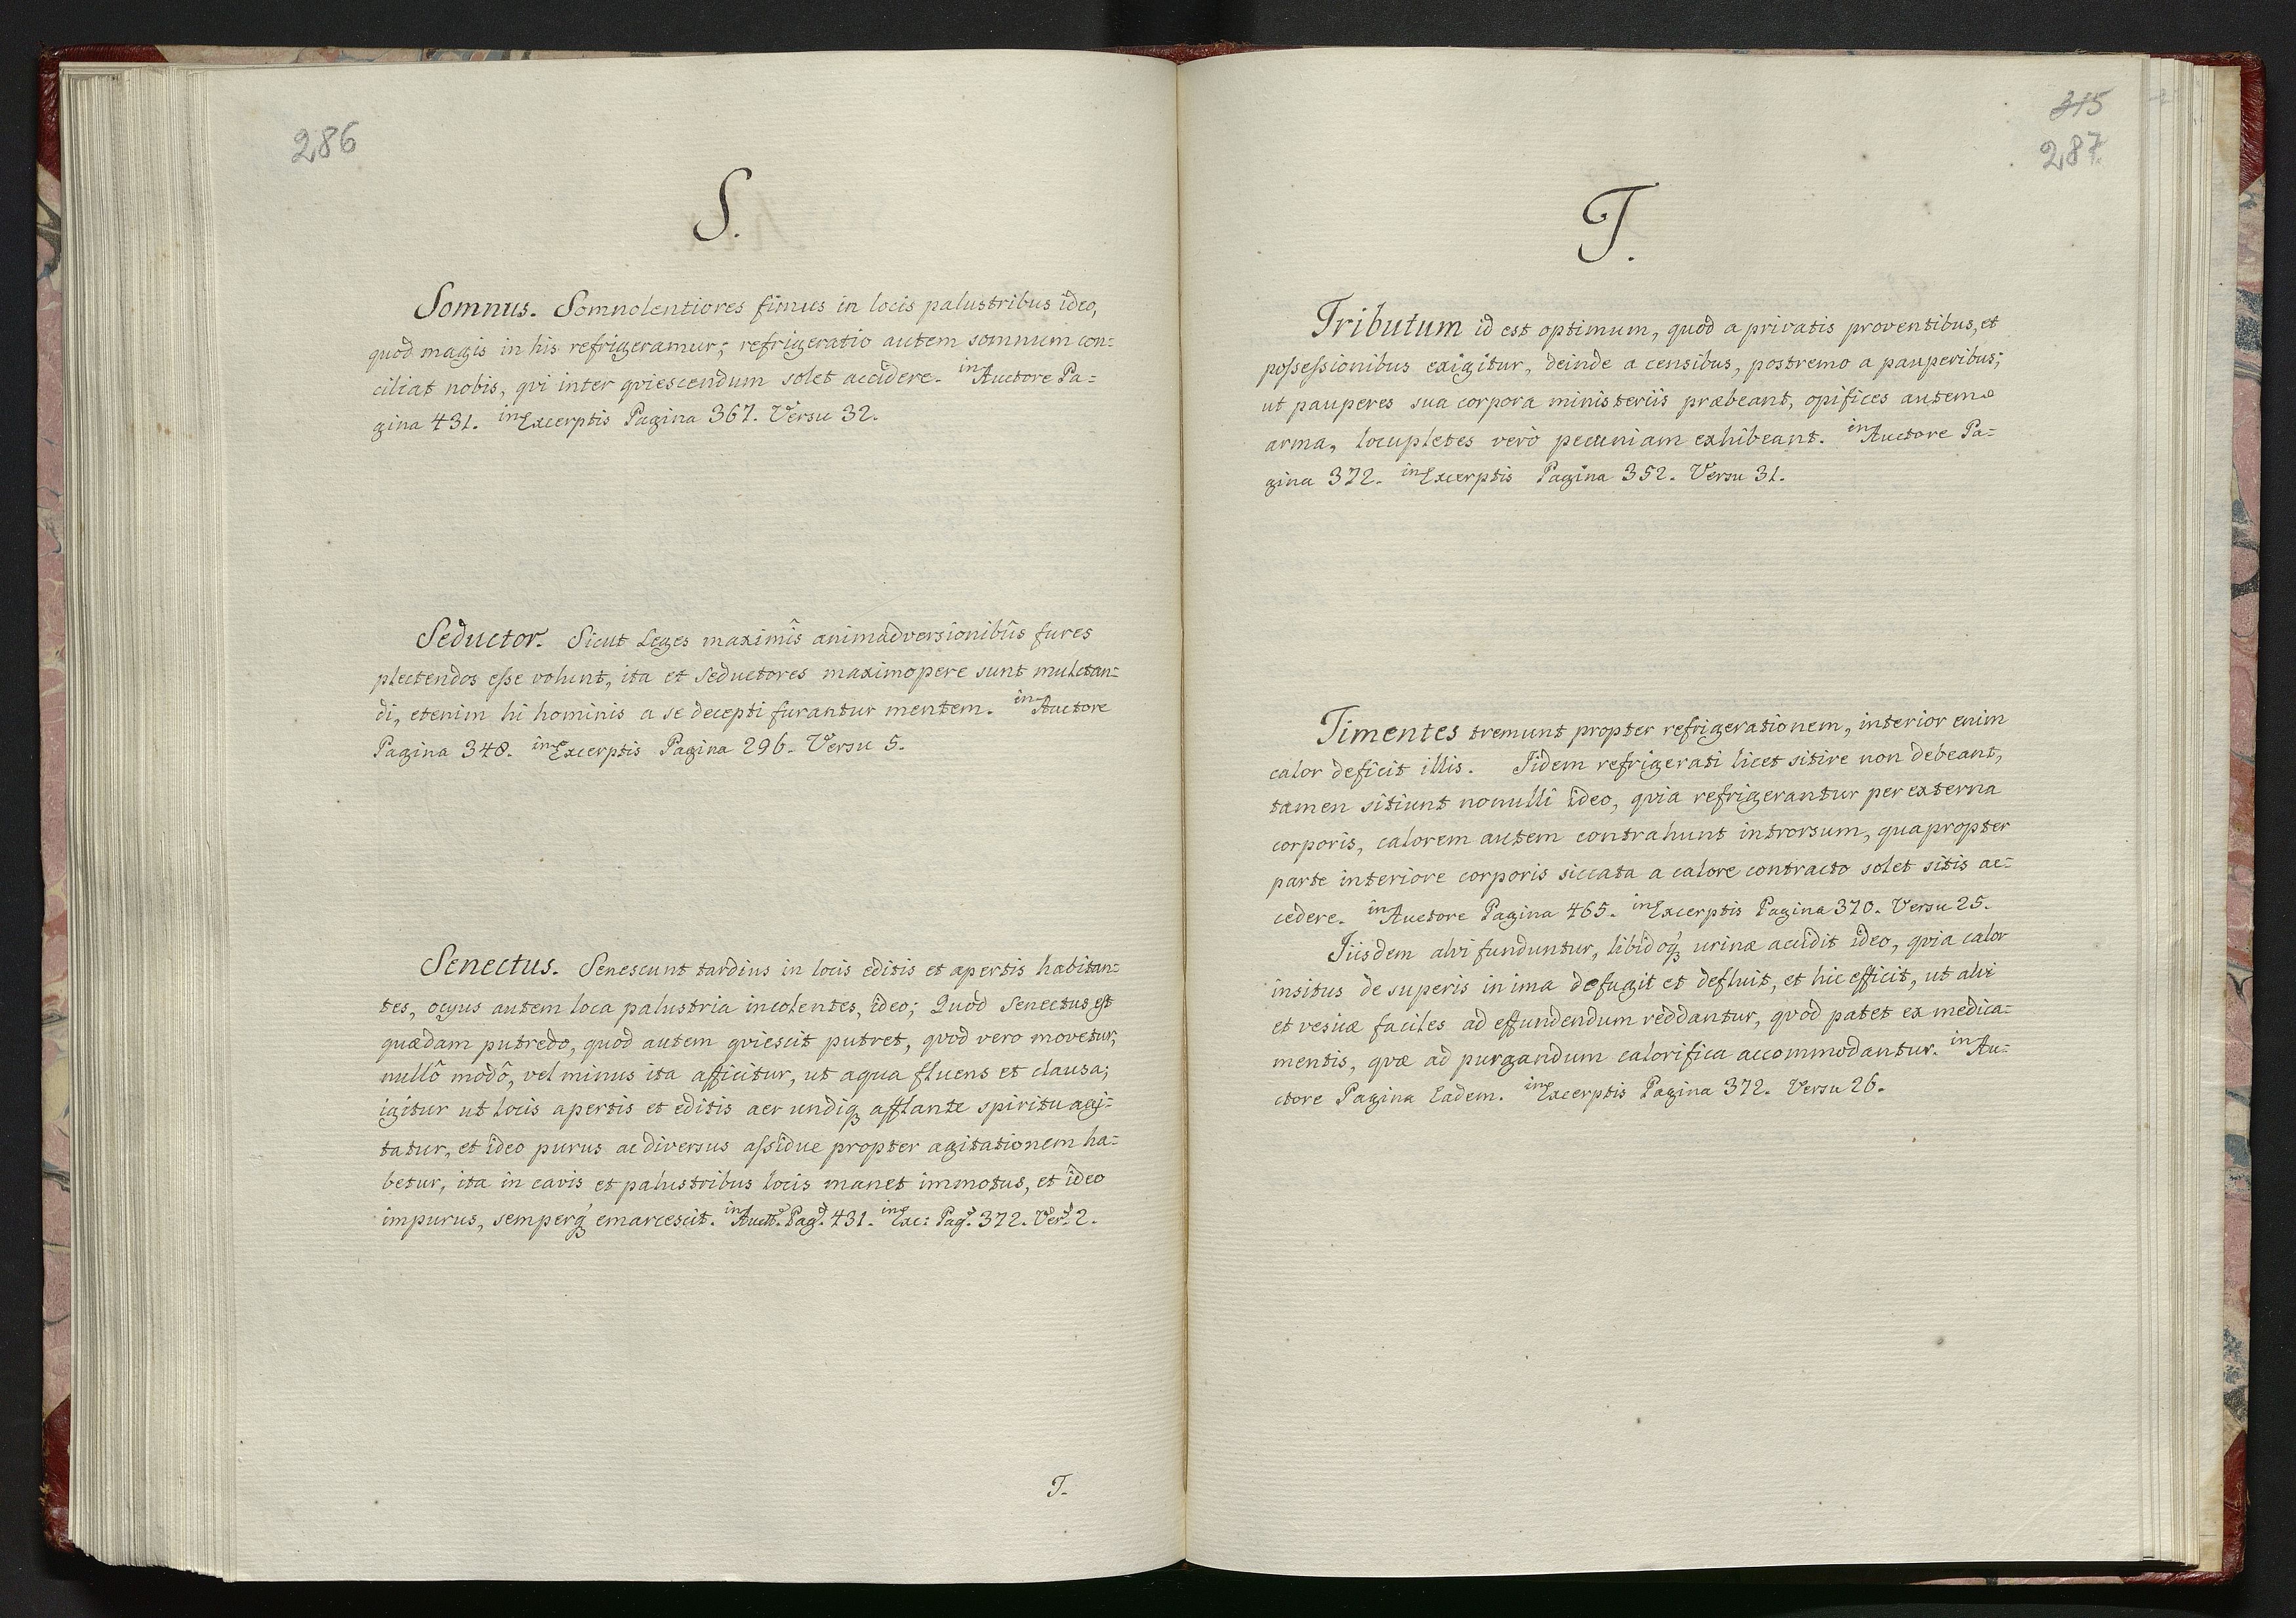 286
S.
Somnus. Somnolentiores fimus in locis palustribus ideo,
quod magis in his refrigeramur; refrigeratio autem somnum con=
ciliat nobis, qvi inter qviescendum solet accidere. in Auctore Pa=
gina 431. in Excerptis Pagina 367. Versu 32.
Seductor. Sicut Leges maximîs animadversionibûs fures
plectendos esse volunt, ita et seductores maximopere sunt mulctan=
di, etenim hi hominis a se decepti furantur mentem. in Auctore
Pagina 348. in Excerptis Pagina 296. Versu 5.
Senectus. Senescunt tardius in locis editis et apertis habitan=
tes, ocyus autem loca palustria incolentes, ideo; Quod Senectus est
quædam putredo, quod autem qviescit putret, qvod vero movetur,
nullô modô, vel minus ita afficitur, ut aqua fluens et clausa;
igitur ut locis apertis et editis aer undiq; afflante spiritu agi=
tatur, et ideo purus ac diversus assidue propter agitationem ha=
betur, ita in cavis et palustribus locis manet immotus, et ideo
impurus, semperq; emarcescit. in Auct. Pag. 431. in Exc: Pag. 372. Vers. 2.
T.
315
287.
T.
Tributum id est optimum, quod a privatis proventibus, et
possessionibus exigitur, deinde a censibus, postremo a pauperibus;
ut pauperes sua corpora ministeriis præbeant, opifices autem
arma, locupletes verò pecuniam exhibeant. in Auctore Pa=
gina 372. in Excerptis Pagina 352. Versu 31.
Timentes tremunt propter refrigerationem, interior enim
calor deficit illis. Iidem refrigerati licet sitire non debeant,
tamen sitiunt nonulli ideo, qvia refrigerantur per externa
corporis, calorem autem contrahunt introrsum, quapropter
parte interiore corporis siccata a calore contracto solet sitis ac=
cedere. in Auctore Pagina 465. in Excerptis Pagina 370. Versu 25.
Iiisdem alvi funduntur, libidoq; urinæ accidit ideo, qvia calor
insitus de superis in ima defugit et defluit, et hic efficit, ut alvi
et vesicæ faciles ad effundendum reddantur, qvod patet ex medica=
mentis, qvæ ad purgandum calorifica accommodantur. in Au=
ctore Pagina Eadem. in Excerptis Pagina 372. Versu 26.